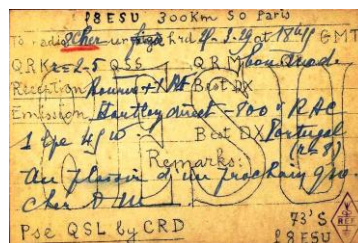 P8ESU 300Km SO Paris
To radio 8Cher ur hrd at 18 GMT
QRK r=2-5 QSS QRM bon Mod
Reception Bourne + 1 Best DX
Emission Hartley direct - 800 v RAC
1 type 45 w Best DX Portugal
(r=8)
Remarks:
Au plaisir d'un prochain qso
cher O M
ESU
Pse QSL by CRD 73'S
REF P8ESU